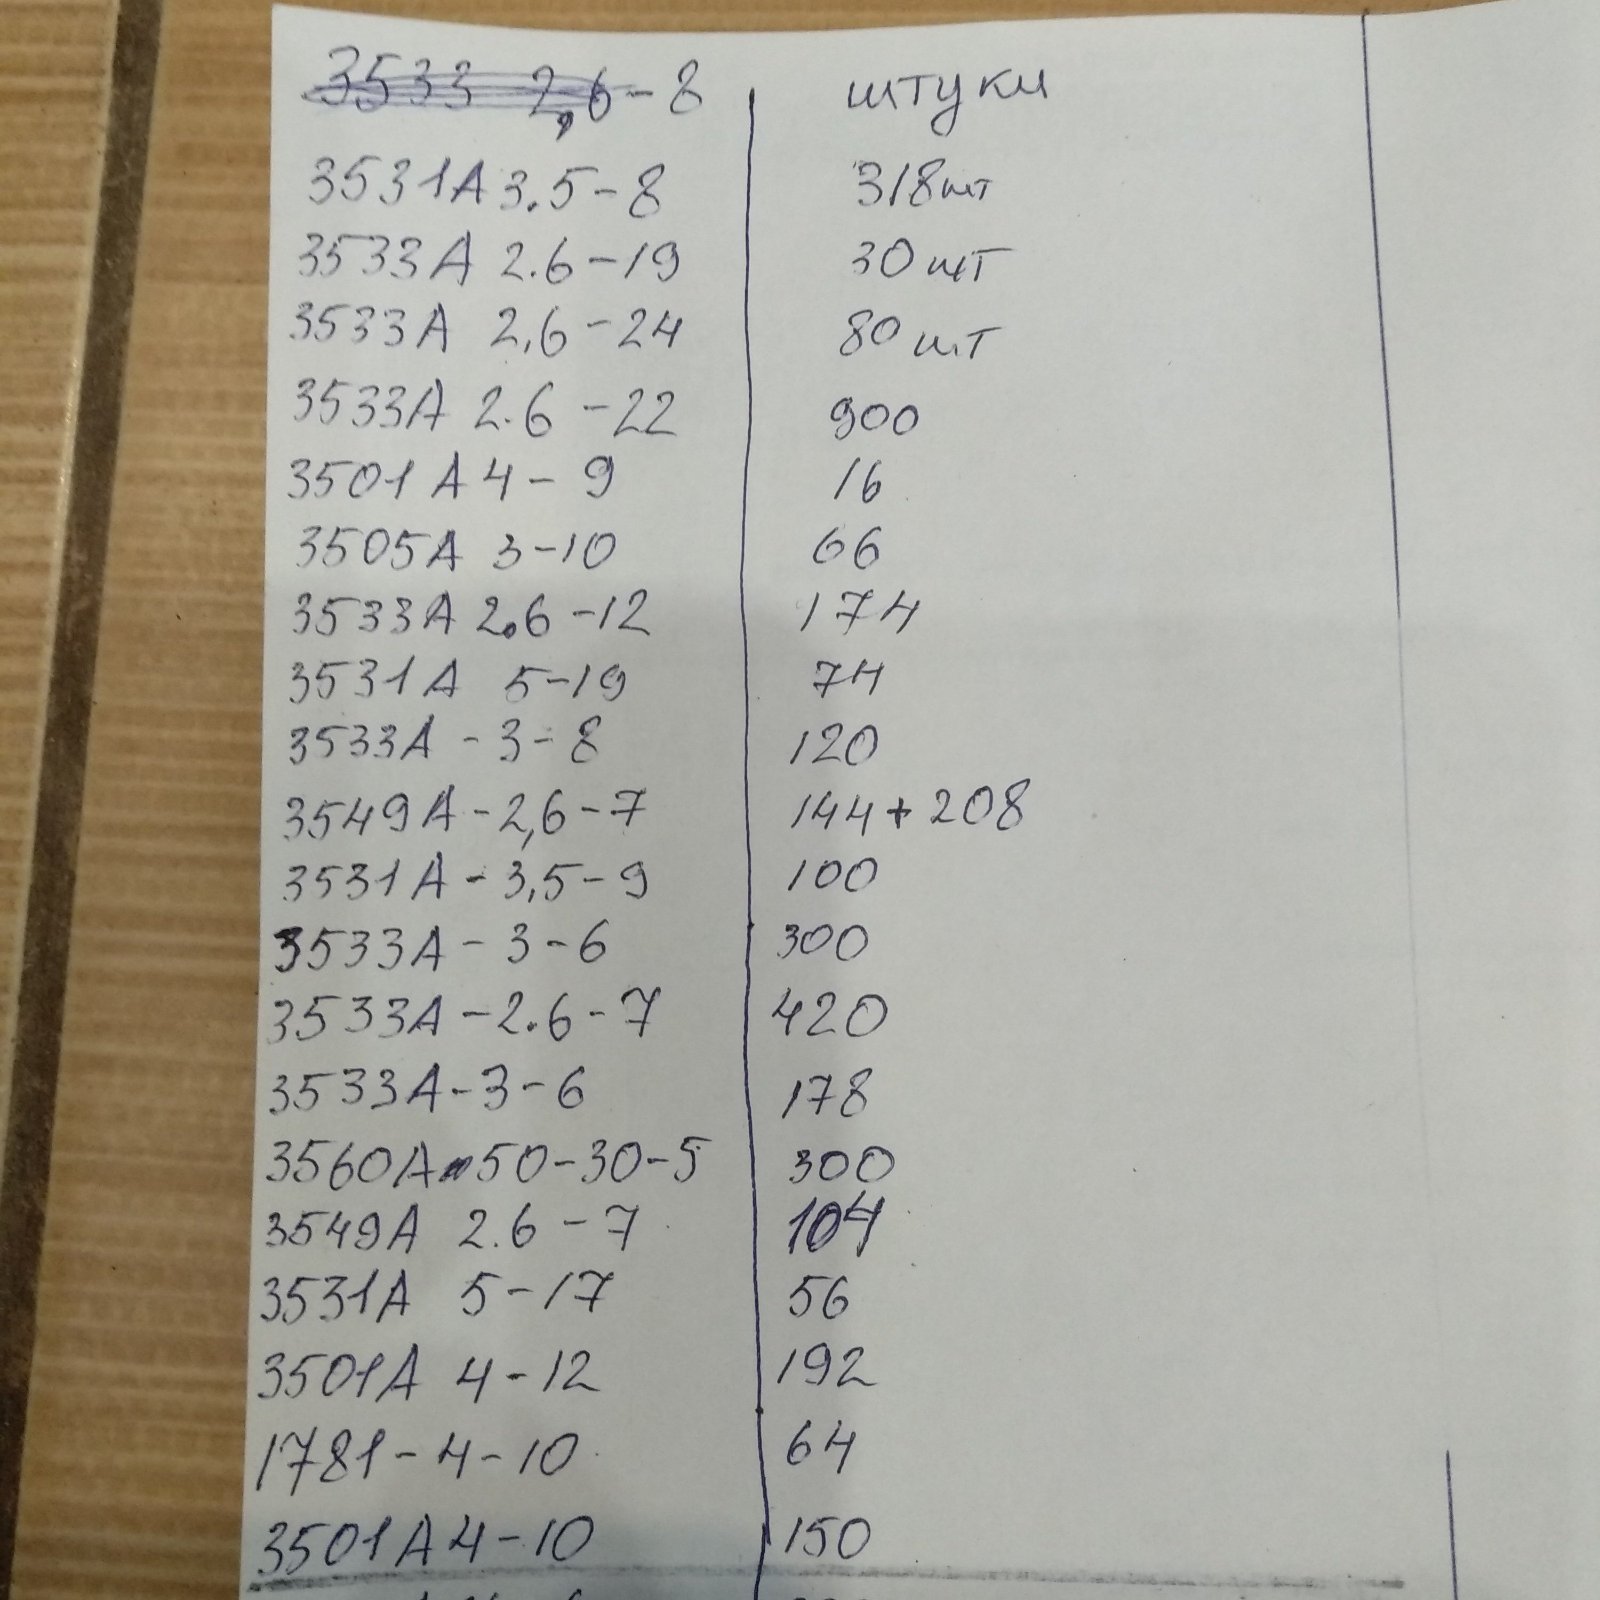 3533 2,6-8 штуки
3531А 3.5-8 318шт
3533А 2.6-19 30шт
3533А 2,6-24 80шт
3533А 2.6-22 900
3501А 4-9 16
3505А 3-10 66
3533А 2.6-12 174
3531А 5-19 74
3533А-3-8 120
3549А-2,6-7 144+208
3531А-3,5-9 100
3533А-3-6 300
3533А-2.6-7 420
3533А-3-6 178
3560А-50-30-5 300
3549А 2.6-7 104
3531А 5-17 56
3501А 4-12 192
1781-4-10 64
3501А 4-10 150